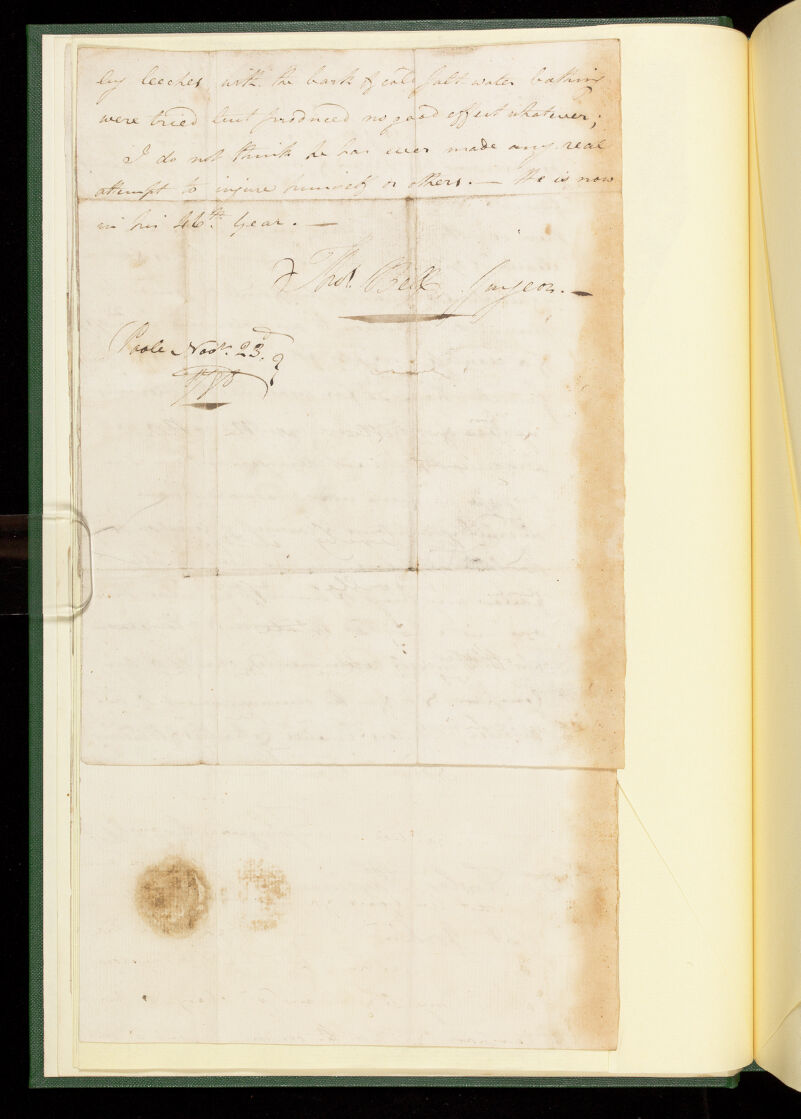 by leeches, with the bark & cold salt water bathing
were tried but produced no good effect whatever;
I do not think he has ever made any real
attempt to injure himself or others. — He is now
in his 46th. Year. —
Thos. Bell Surgeon. —
Poole Novr. 23d.